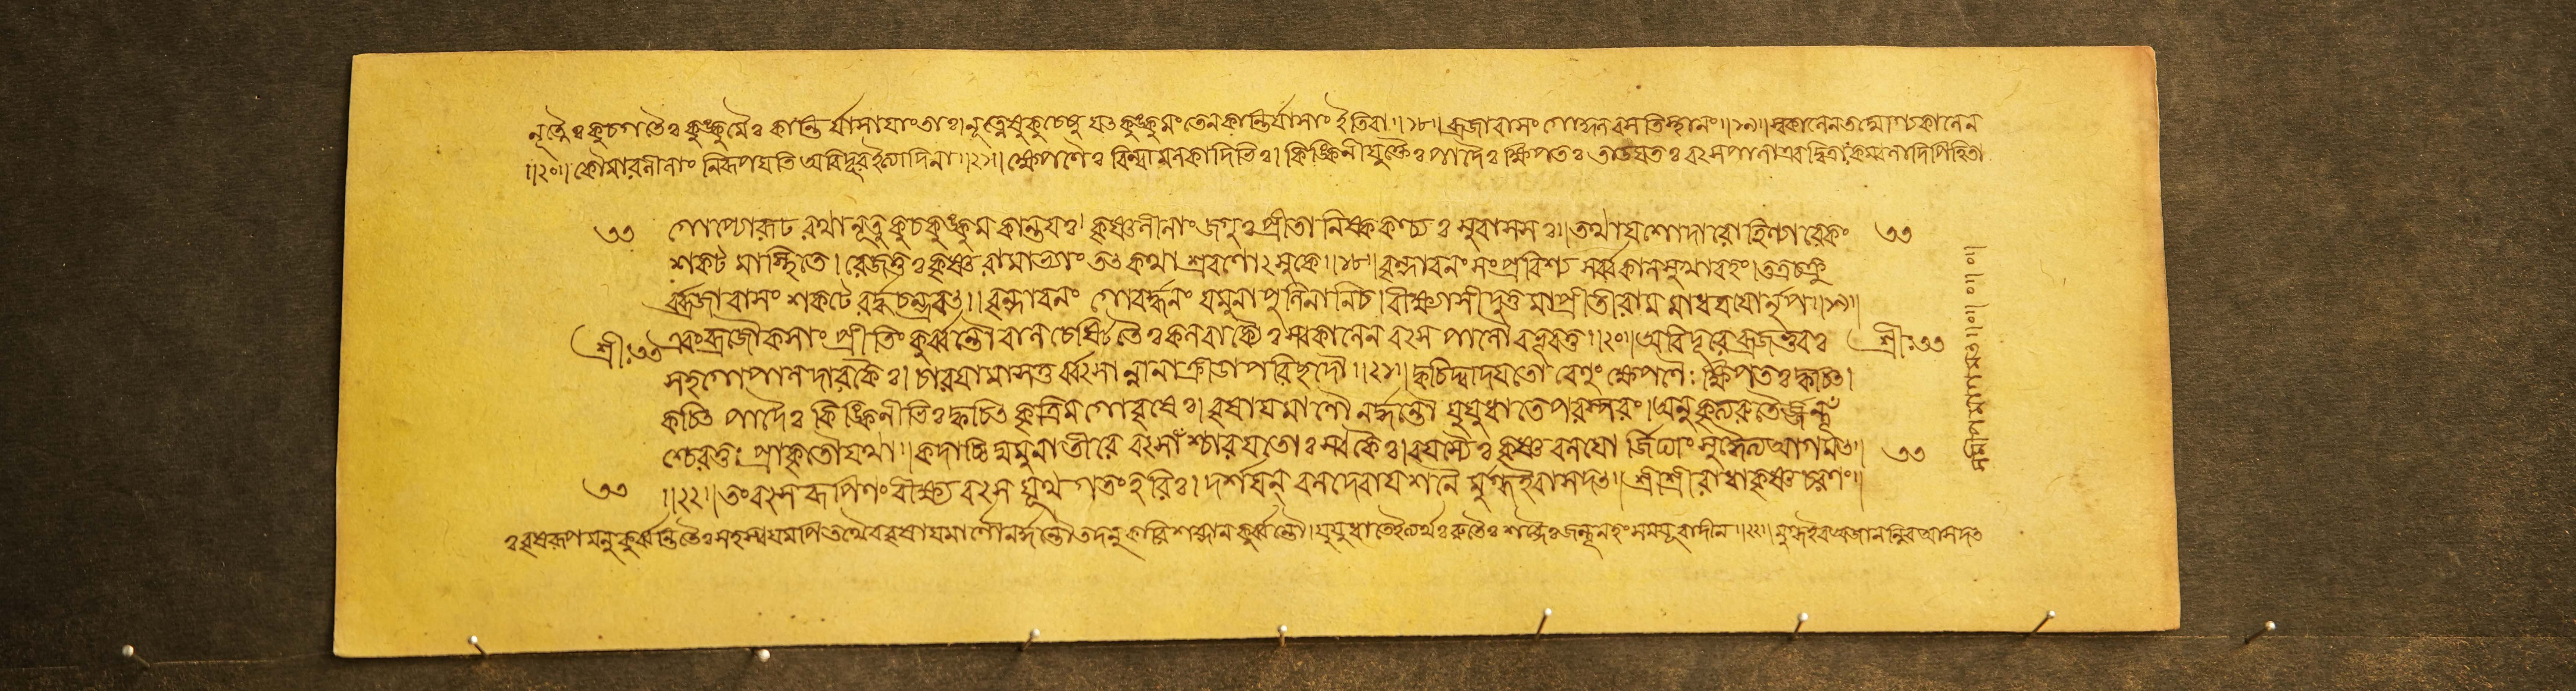 নূত্নৈঃ কুচগতৈঃ কুঙ্কুমৈঃ কান্তির্যাসাং যাং তাঃ। নূত্নেষু কুচেষু যৎ কুঙ্কুমং তেন কান্তির্যাসাং ইতি বা॥১৮॥ ব্রজাবাসং গোব্রজবসতিস্থানং॥১৯॥ স্বকালেন
॥২০॥ কৌমারলীলাং নিরূপযতি অবিদূর ইত্যাদিনা॥২১॥ ক্ষেপণৈঃ বিল্বামলকাদিভিঃ। কিঙ্কিনীযুক্তৈঃ পাদৈঃ ক্ষিপতঃ তাডযতঃ বৎসপালা
৩৩ গোপ্যোরূঢ রথা নূত্ন কুচকুঙ্কুম কান্তযঃ। কৃষ্ণলীলাং জগুঃ প্রীতা নিষ্ককণ্ঠ্যঃ সুবাসসঃ॥ তথা যশোদারোহিণ্যাবেকং ৩৩
শকট মাস্থিতে। রেজতুঃ কৃষ্ণ রামাভ্যাং তৎ কথা শ্রবণোৎসুকে॥১৮॥ বৃন্দাবনং সংপ্রবিশ্য সর্ব্বকালসুখাবহং। তত্রচক্রু
র্ব্রজাবাসং শকটৈ রর্দ্ধচন্দ্রবৎ॥ বৃন্দাবনং গোবর্দ্ধনং যমুনা পুলিনানি চ। বীক্ষ্যাসীদুত্তমাপ্রীতীরাম মাধবযোর্নৃপ॥১৯॥
শ্রীঃ৩৩ এবং ব্রজৌকসাং প্রীতিং কুর্ব্বন্তৌ বাল চেষ্টিতৈঃ কলবাক্যৈঃ স্বকালেন বৎস পালৌ বভূবতু॥২০॥ অবিদূরে ব্রজভুবঃ শ্রীঃ৩৩
সহগোপালদারকৈঃ। চারযামাসতু র্ব্বৎসান্ নানাক্রীডা পরিছদৌ॥২১॥ ক্বচিদ্বাদযতো বেণুং ক্ষেপণৈঃ ক্ষিপতঃ ক্বচিৎ।
ক্বচিৎ পাদৈঃ কিঙ্কিনীভিঃ ক্বচিৎ কৃত্রিম গোবৃষৈঃ। বৃষাযমাণৌ নর্দ্দন্তৌ যুযুধাতে পরস্পরং। অনুকৃত্যরুতৈর্জন্তূঁ
শ্চেরতুঃ প্রাকৃতৌ যথা॥ কদাচি দ্যমুনা তীরে বৎসাঁ শ্চারযতোঃ স্বকৈঃ। বযস্যৈঃ কৃষ্ণ বলযো র্জিঘাংসুর্দৈত্য আগমৎ॥ ৩৩
৩৩ ॥২২॥ তং বৎস রূপিণং বীক্ষ্য বৎস যূথ গতং হরিঃ। দর্শযন্ বলদেবায শনৈ র্মুগ্ধ ইবাসদৎ॥ শ্রীশ্রীরাধাকৃষ্ণ চরণং॥
ঃ বৃষরূপ মনুকুর্ব্বদ্ভিঃ সহ স্বযমপি তথৈব বৃষাযমাণৌ নর্দ্দন্তৌ তদনুকারি শব্দান কুর্ব্বন্তৌ। যুযুধাতে ইত্যর্থঃ রুতৈঃ শব্দৈঃ জন্তূন হংসমযূরাদীন॥২২॥ মুগ্ধ ইব অজানন্নিব আসদৎ